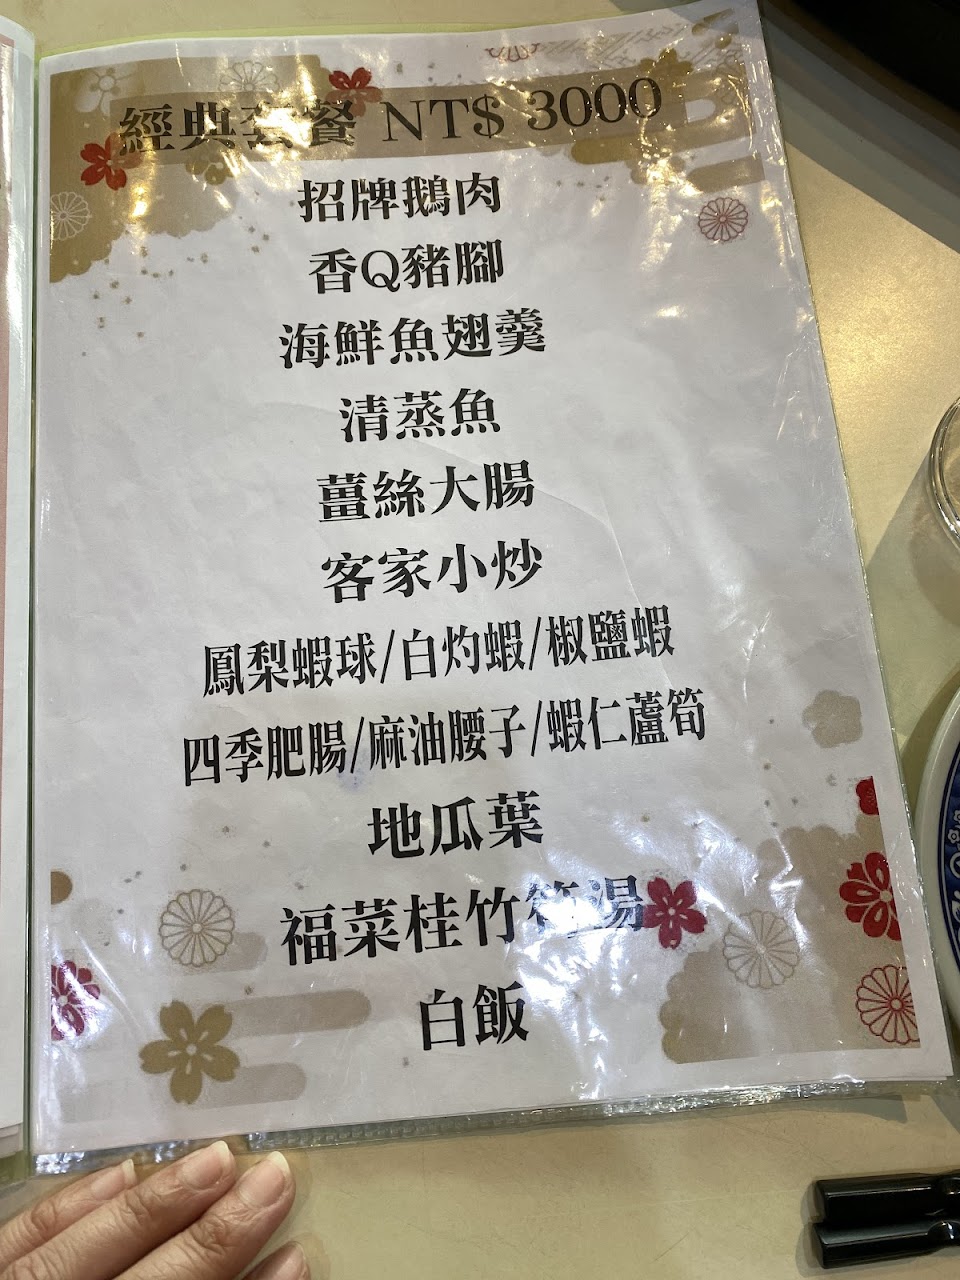 經典套餐 NT$ 3000
招牌鵝肉
香Q豬腳
海鮮魚翅羹
清蒸魚
薑絲大腸
客家小炒
鳳梨蝦球/白灼蝦/椒鹽蝦
四季肥腸/麻油腰子/蝦仁蘆筍
地瓜葉
福菜桂竹筍湯
白飯